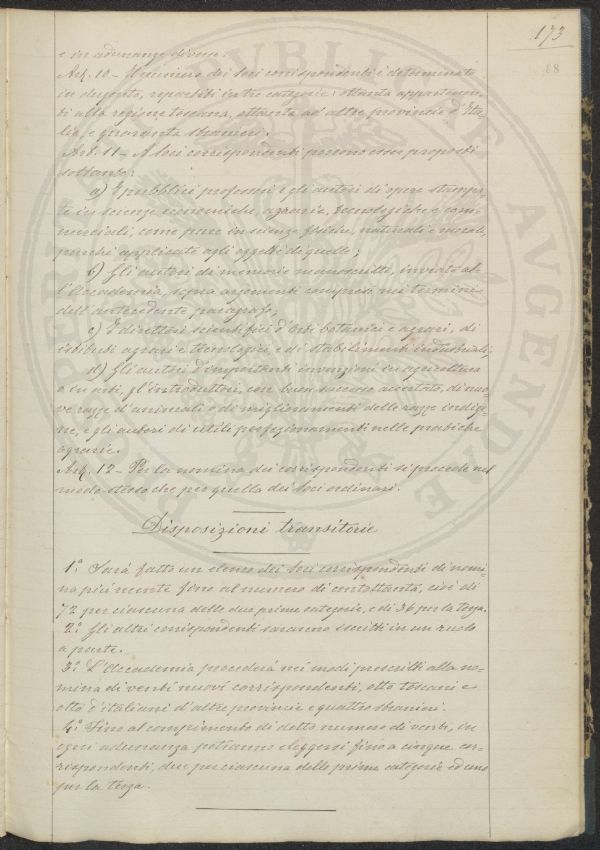 173
88
e in adunanze diverse.
Art. 10 - Il numero dei Soci corrispondenti è determinato
in dugento, repartiti in tre categorie: ottanta appartenen-
ti alla regione toscana, ottanta ad altre provincie d'Ita-
lia, e quaranta stranieri.
Art. 11 - A Soci corrispondenti possono esser proposti
soltanto:
a) I pubblici professori e gli autori di opere stampa-
te in scienze economiche, agrarie, tecnologiche e com-
merciali, come pure in scienze fisiche, naturali e morali,
purchè applicate agli oggetti di quelle;
b) Gli autori di memorie manoscritte, inviate al-
l'Accademia, sopra argomenti compresi nei termini
dell'antecedente paragrafo;
c) I direttori scientifici d'orti botanici e agrari, di
istituti agrari e tecnologici, e di stabilimenti industriali;
d) Gli autori d'importanti invenzioni in agricoltura
o in arti, gl'introduttori, con buon successo accertato, di nuo-
ve razze d'animali o di miglioramenti delle razze indige-
ne, e gli autori di utili perfezionamenti nelle pratiche
agrarie.
Art. 12 - Per la nomina dei corrispondenti si procede nel
modo stesso che per quella dei Soci ordinari.
Disposizioni transitorie
1.a Sarà fatto un elenco dei Soci corrispondenti di nomi-
na più recente fino al numero di centottanta, cioè di
72 per ciascuna delle due prime categorie, e di 36 per la terza.
2.a Gli altri corrispondenti saranno iscritti in un ruolo
a parte.
3.a L'Accademia procederà nei modi prescritti alla no-
mina di venti nuovi corrispondenti, otto toscani e
otto d'italiani d'altre provincie e quattro stranieri.
4.a Fino al compimento di detto numero di venti, in
ogni adunanza potranno eleggersi fino a cinque cor-
rispondenti, due per ciascuna delle prime categorie ed uno
per la terza.